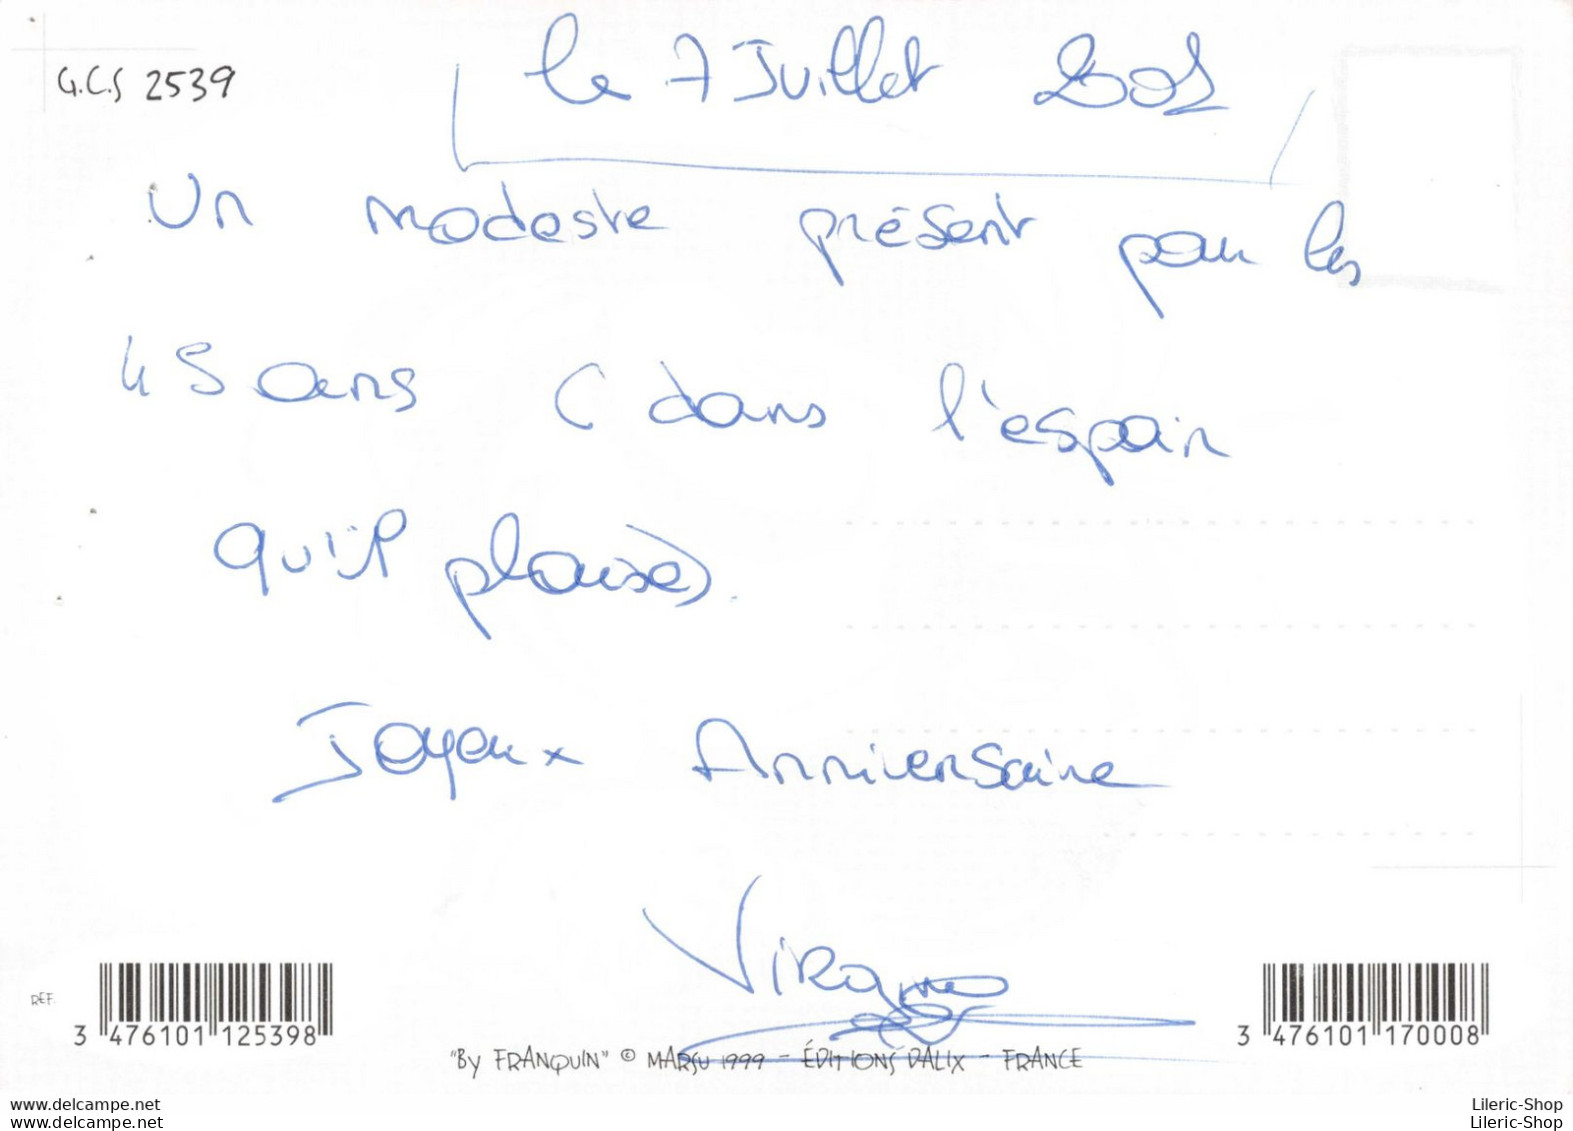 G.C.S 2539
le 7 Juillet
Un modeste présent pour les
45 ans (dans l'espoir
qu'il plaise)
Joyeux Anniversaire
REF.
3 476101 125398
3 476101 170008
"By FRANQUIN" © MARSU 1999 - ÉDITIONS DALIX - FRANCE
www.delcampe.net
www.delcampe.net
Lileric-Shop
Lileric-Shop